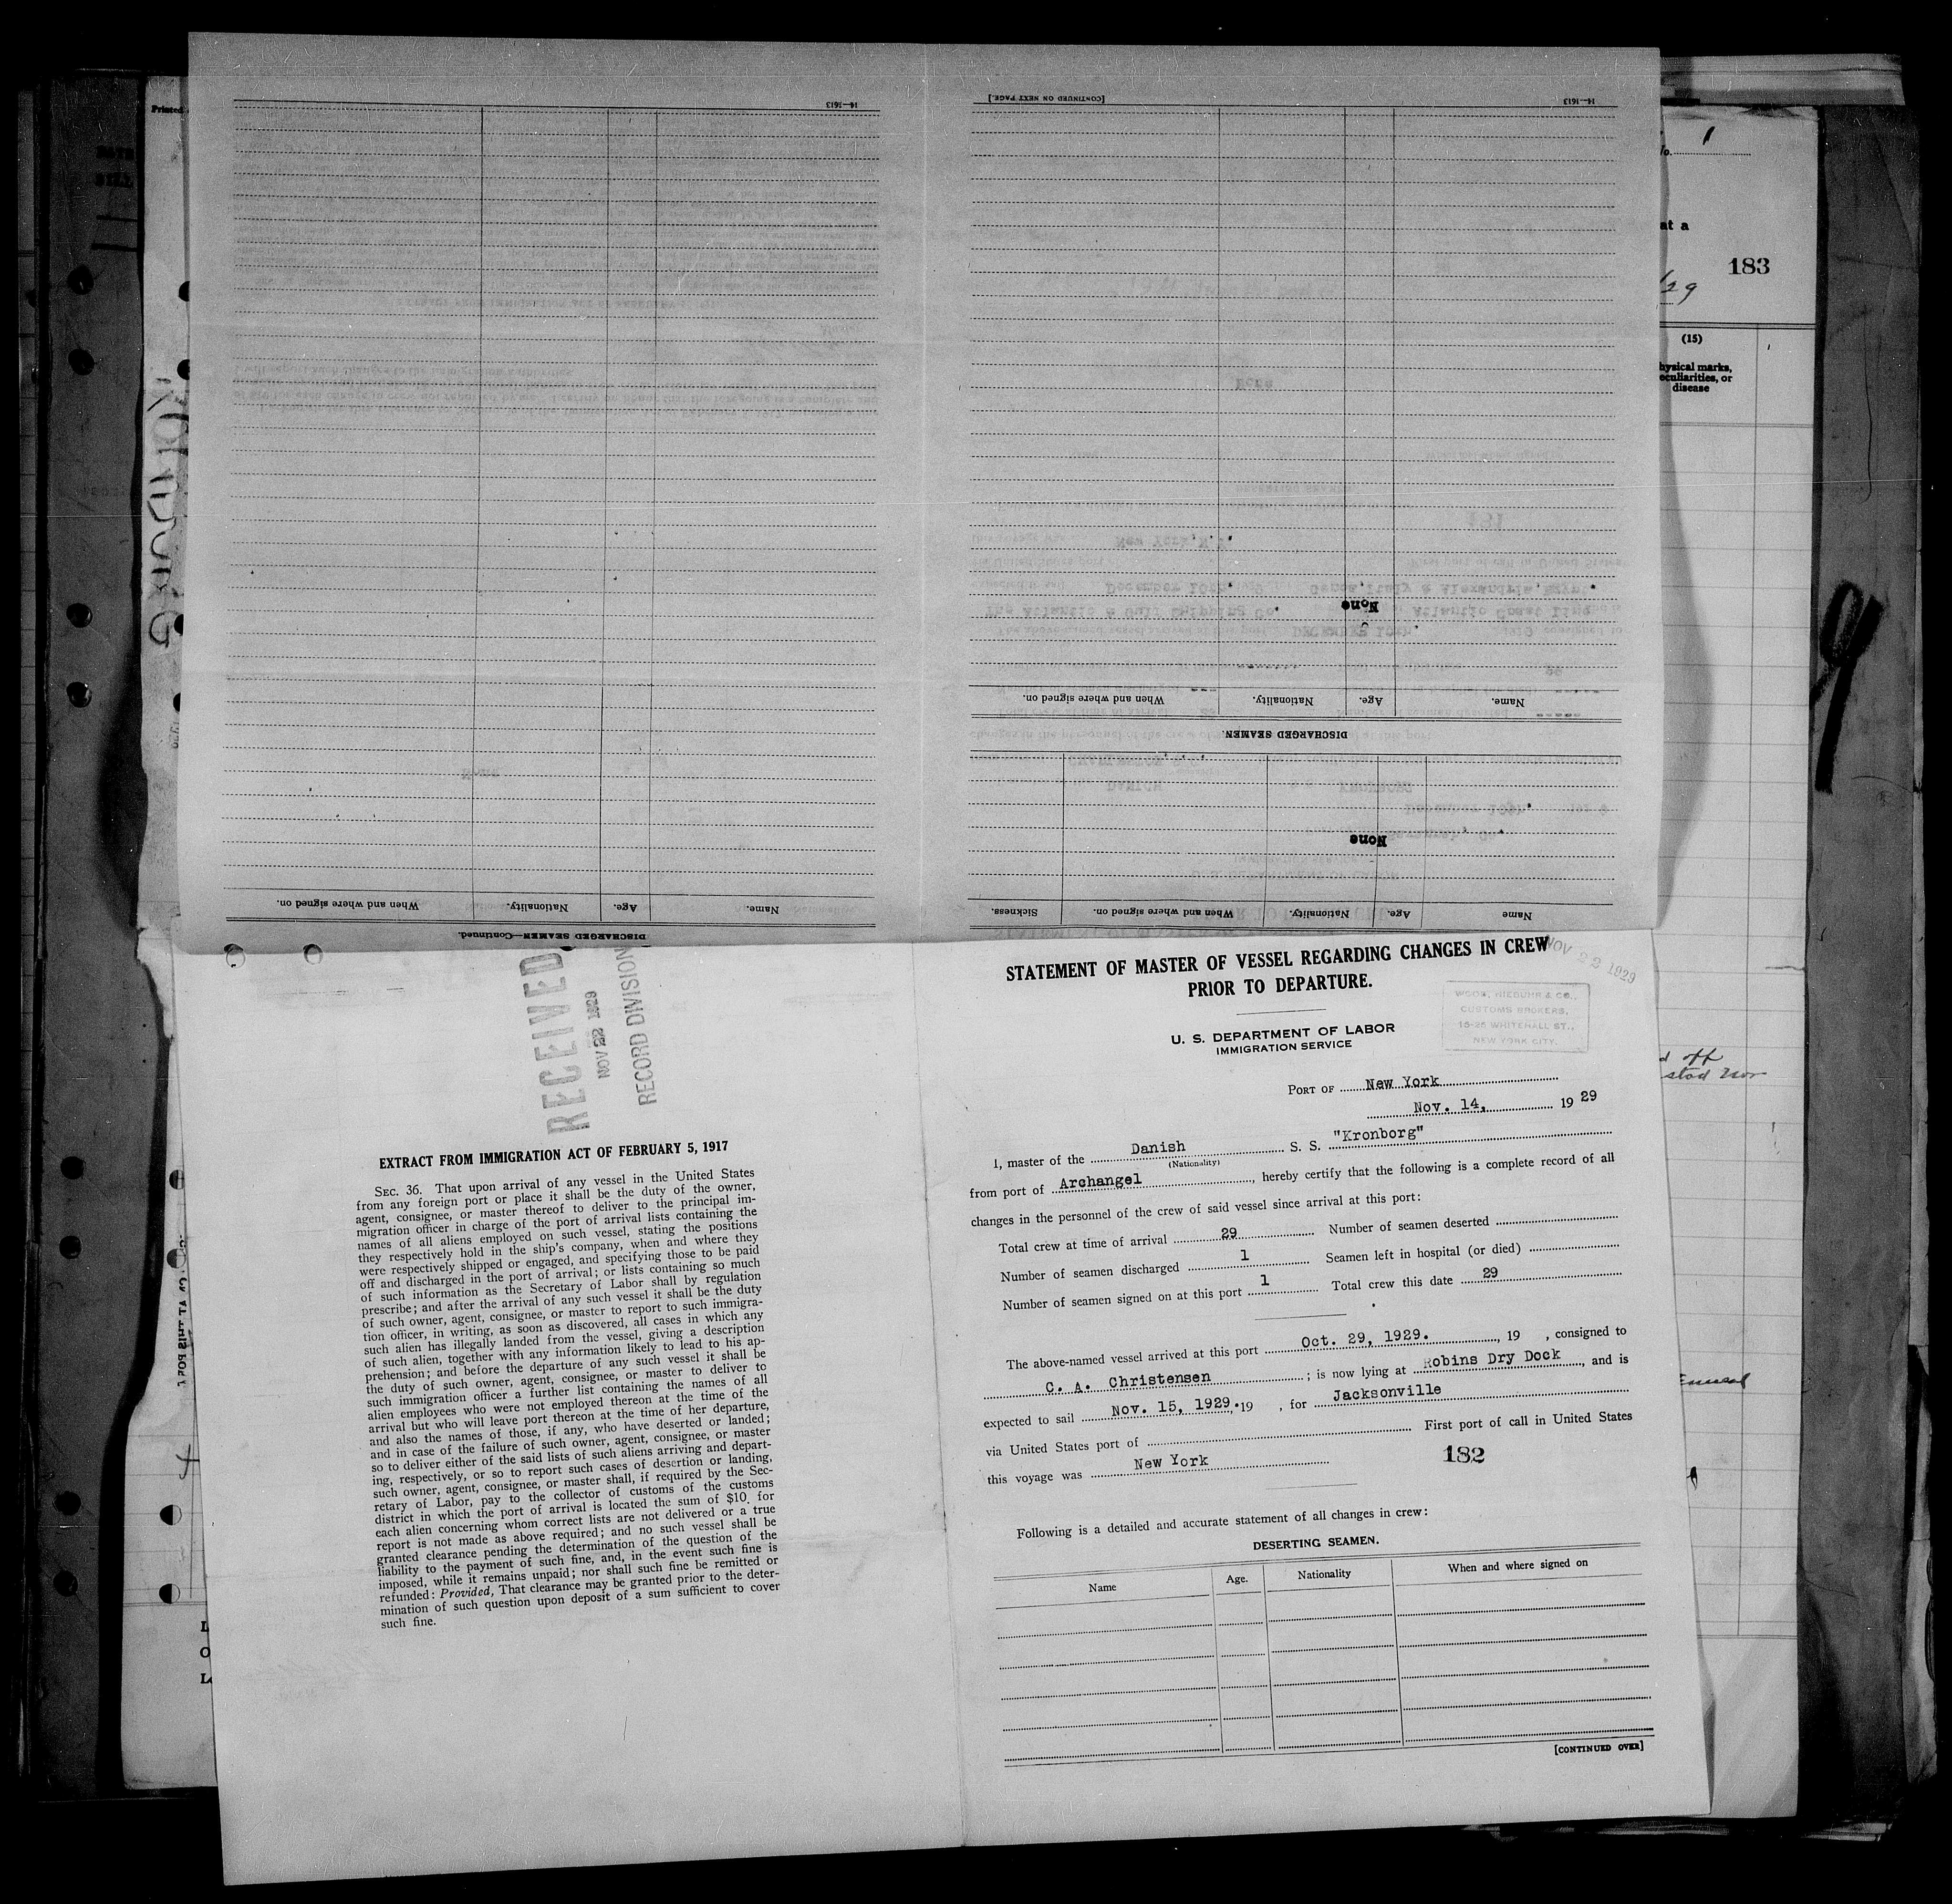 14—1613
[CONTINUED ON NEXT PAGE.]
14—1613
None
Name. Age. Nationality. When and where signed on.
DISCHARGED SEAMEN.
None
Name Age. Nationality. When and where signed on. Sickness.
Name. Age. Nationality. When and where signed on.
DISCHARGED SEAMEN—Continued.
Printed
1
No.
at a
183
/29
(15)
hysical marks,
eculiarities, or
disease
RECEIVED
NOV 22 1929
RECORD DIVISION
EXTRACT FROM IMMIGRATION ACT OF FEBRUARY 5, 1917
SEC. 36. That upon arrival of any vessel in the United States
from any foreign port or place it shall be the duty of the owner,
agent, consignee, or master thereof to deliver to the principal im-
migration officer in charge of the port of arrival lists containing the
names of all aliens employed on such vessel, stating the positions
they respectively hold in the ship's company, when and where they
were respectively shipped or engaged, and specifying those to be paid
off and discharged in the port of arrival; or lists containing so much
of such information as the Secretary of Labor shall by regulation
prescribe; and after the arrival of any such vessel it shall be the duty
of such owner, agent, consignee, or master to report to such immigra-
tion officer, in writing, as soon as discovered, all cases in which any
such alien has illegally landed from the vessel, giving a description
of such alien, together with any information likely to lead to his ap-
prehension; and before the departure of any such vessel it shall be
the duty of such owner, agent, consignee, or master to deliver to
such immigration officer a further list containing the names of all
alien employees who were not employed thereon at the time of the
arrival but who will leave port thereon at the time of her departure,
and also the names of those, if any, who have deserted or landed;
and in case of the failure of such owner, agent, consignee, or master
so to deliver either of the said lists of such aliens arriving and depart-
ing, respectively, or so to report such cases of desertion or landing,
such owner, agent, consignee, or master shall, if required by the Sec-
retary of Labor, pay to the collector of customs of the customs
district in which the port of arrival is located the sum of $10 for
each alien concerning whom correct lists are not delivered or a true
report is not made as above required; and no such vessel shall be
granted clearance pending the determination of the question of the
liability to the payment of such fine, and, in the event such fine is
imposed, while it remains unpaid; nor shall such fine be remitted or
refunded: Provided, That clearance may be granted prior to the deter-
mination of such question upon deposit of a sum sufficient to cover
such fine.
STATEMENT OF MASTER OF VESSEL REGARDING CHANGES IN CREW
PRIOR TO DEPARTURE.
NOV 22 1929
U. S. DEPARTMENT OF LABOR
IMMIGRATION SERVICE
WOOD, NIEBUHR & CO.,
CUSTOMS BROKERS,
15-25 WHITEHALL ST.,
NEW YORK CITY.
PORT OF New York
Nov. 14, 1929
I, master of the Danish S. S. "Kronborg"
(Nationality)
from port of Archangel, hereby certify that the following is a complete record of all
changes in the personnel of the crew of said vessel since arrival at this port:
Total crew at time of arrival 29 Number of seamen deserted
Number of seamen discharged 1 Seamen left in hospital (or died)
Number of seamen signed on at this port 1 Total crew this date 29
The above-named vessel arrived at this port Oct. 29, 1929., 19 , consigned to
C. A. Christensen ; is now lying at Robins Dry Dock, and is
expected to sail Nov. 15, 1929. 19 , for Jacksonville
via United States port of First port of call in United States
this voyage was New York
182
Following is a detailed and accurate statement of all changes in crew:
DESERTING SEAMEN.
Name Age. Nationality When and where signed on
[CONTINUED OVER]